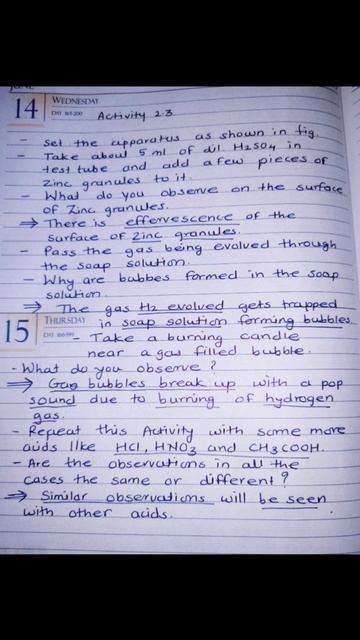 14 WEDNESDAY
DAY 165-200 Activity 2.3
- Set the apparatus as shown in fig.
- Take about 5 ml of dil. H2SO4 in
test tube and add a few pieces of
Zinc granules to it.
- What do you observe on the surface
of Zinc granules.
⇒ There is effervescence of the
surface of zinc granules.
- Pass the gas being evolved through
the soap solution.
- Why are bubbes formed in the soap
solution.
⇒ The gas H2 evolved gets trapped
15 THURSDAY in soap solution forming bubbles
DAY 166-199 - Take a burning candle
near a gas filled bubble.
- What do you observe?
⇒ Gas bubbles break up with a pop
sound due to burning of hydrogen
gas.
- Repeat this Activity with some more
acids like HCl, HNO3 and CH3COOH.
- Are the observations in all the
cases the same or different?
⇒ Similar observations will be seen
with other acids.